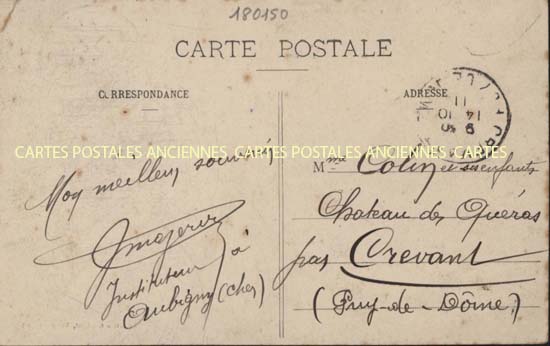 180150
CARTE POSTALE
CORRESPONDANCE
ADRESSE
CARTES POSTALES ANCIENNES CARTES POSTALES ANCIENNES CARTES POSTALES ANCIENNES
Mon meilleur souvenir
Instituteur à
Aubigny (cher)
Mme Colin et ses enfants
Chateau de Quéras
par Crevant
(Puy-de-Dôme)